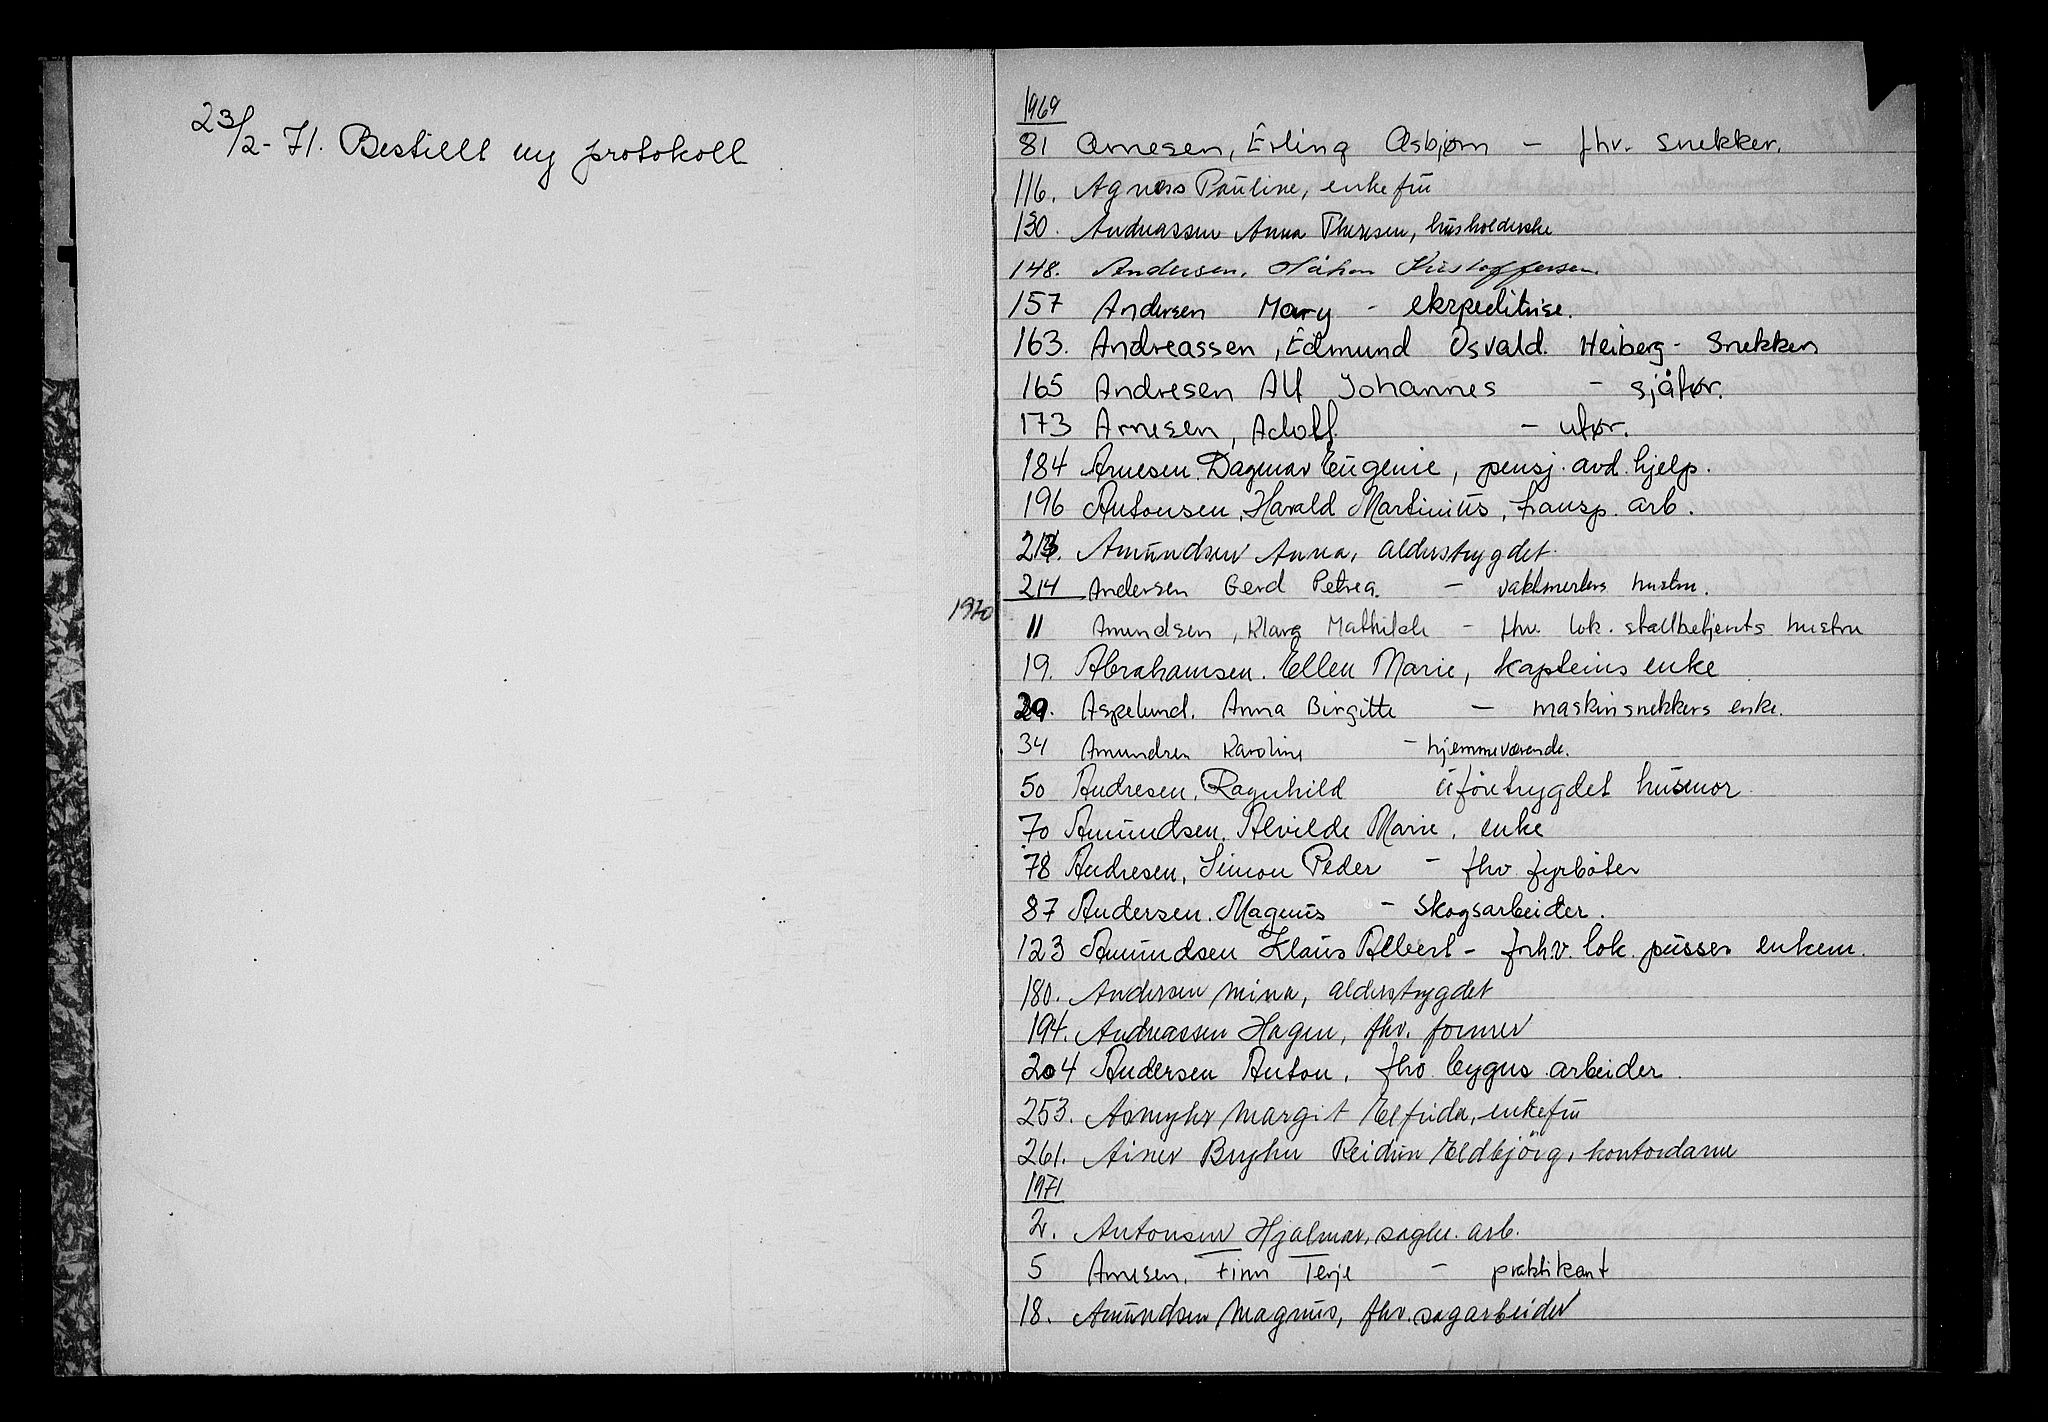 23/2-71. Bestillt ny protokoll
1969
81 Arnesen, Erling Asbjørn - fhv. snekker.
116. Agnass Pauline, enkefru
130. Andreassen Anna Theresen, husholderske
148. Andersen, Håkon Kristoffersen.
157 Andersen Mary - ekspeditrise.
163. Andreassen, Edmund Osvald. Heiberg - Snekker
165 Andresen Alf Johannes - sjåfør.
173 Arnesen, Adolf. - ufør.
184 Arnesen. Dagmar Eugenie, pensj. avd. hjelp.
196 Antonsen, Harald Martinius, transp. arb.
213. Amundsen Anna, alderstrygdet.
214 Andersen Gerd Petrea. - vaktmesters hustru.
1970
11 Amundsen, Klara Mathilde - fhv. lok. stallbetjents hustru
19. Abrahamsen. Ellen Marie, kapteins enke
29. Aspelund. Anna Birgitte - maskinsnekkers enke.
34 Amundsen Karoline - hjemmeværende.
50 Andresen, Ragnhild uføretrygdet husmor
70 Amundsen, Alvilde Marie, enke
78 Andresen, Simon Peder - fhv fyrböter
87 Andersen. Magnus - Skogsarbeider.
123 Amundsen Klaus Albert - frhv. lok. pusser enkem.
180. Andersen Mina, alderstrygdet
194. Andreassen Hagen, fhv. former
204 Andersen Anton, fhv bygns. arbeider.
253. Asmyhr Margit Elfrida, enkefru
261. Ainer Bryhn Reidun Eldbjörg, kontordame
1971
2. Antonsen Hjalmar, sagbr. arb.
5 Arnesen, Finn Terje - praktikant
18. Amundsen Magnus, fhv. sagarbeider